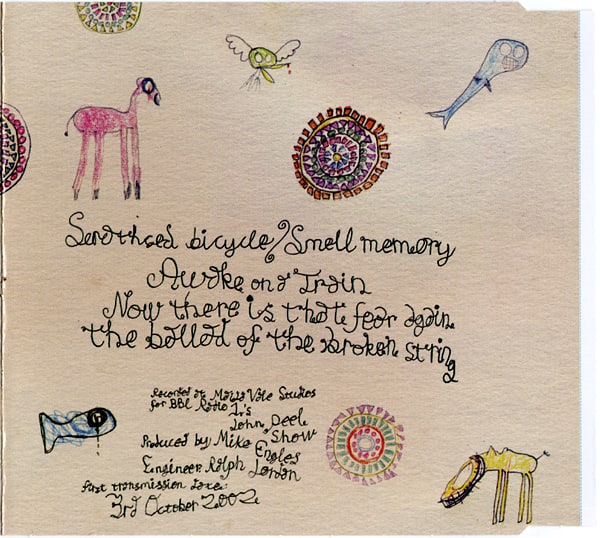 Scratched bicycle/Smell memory
Awake on a Train
Now there is that fear again
the ballad of the broken string
Recorded at Maida Vale Studios
for BBC Radio 1's
John Peel Show
Produced by Mike Engles
Engineer Ralph Jordan
First transmission date:
3rd October 2002